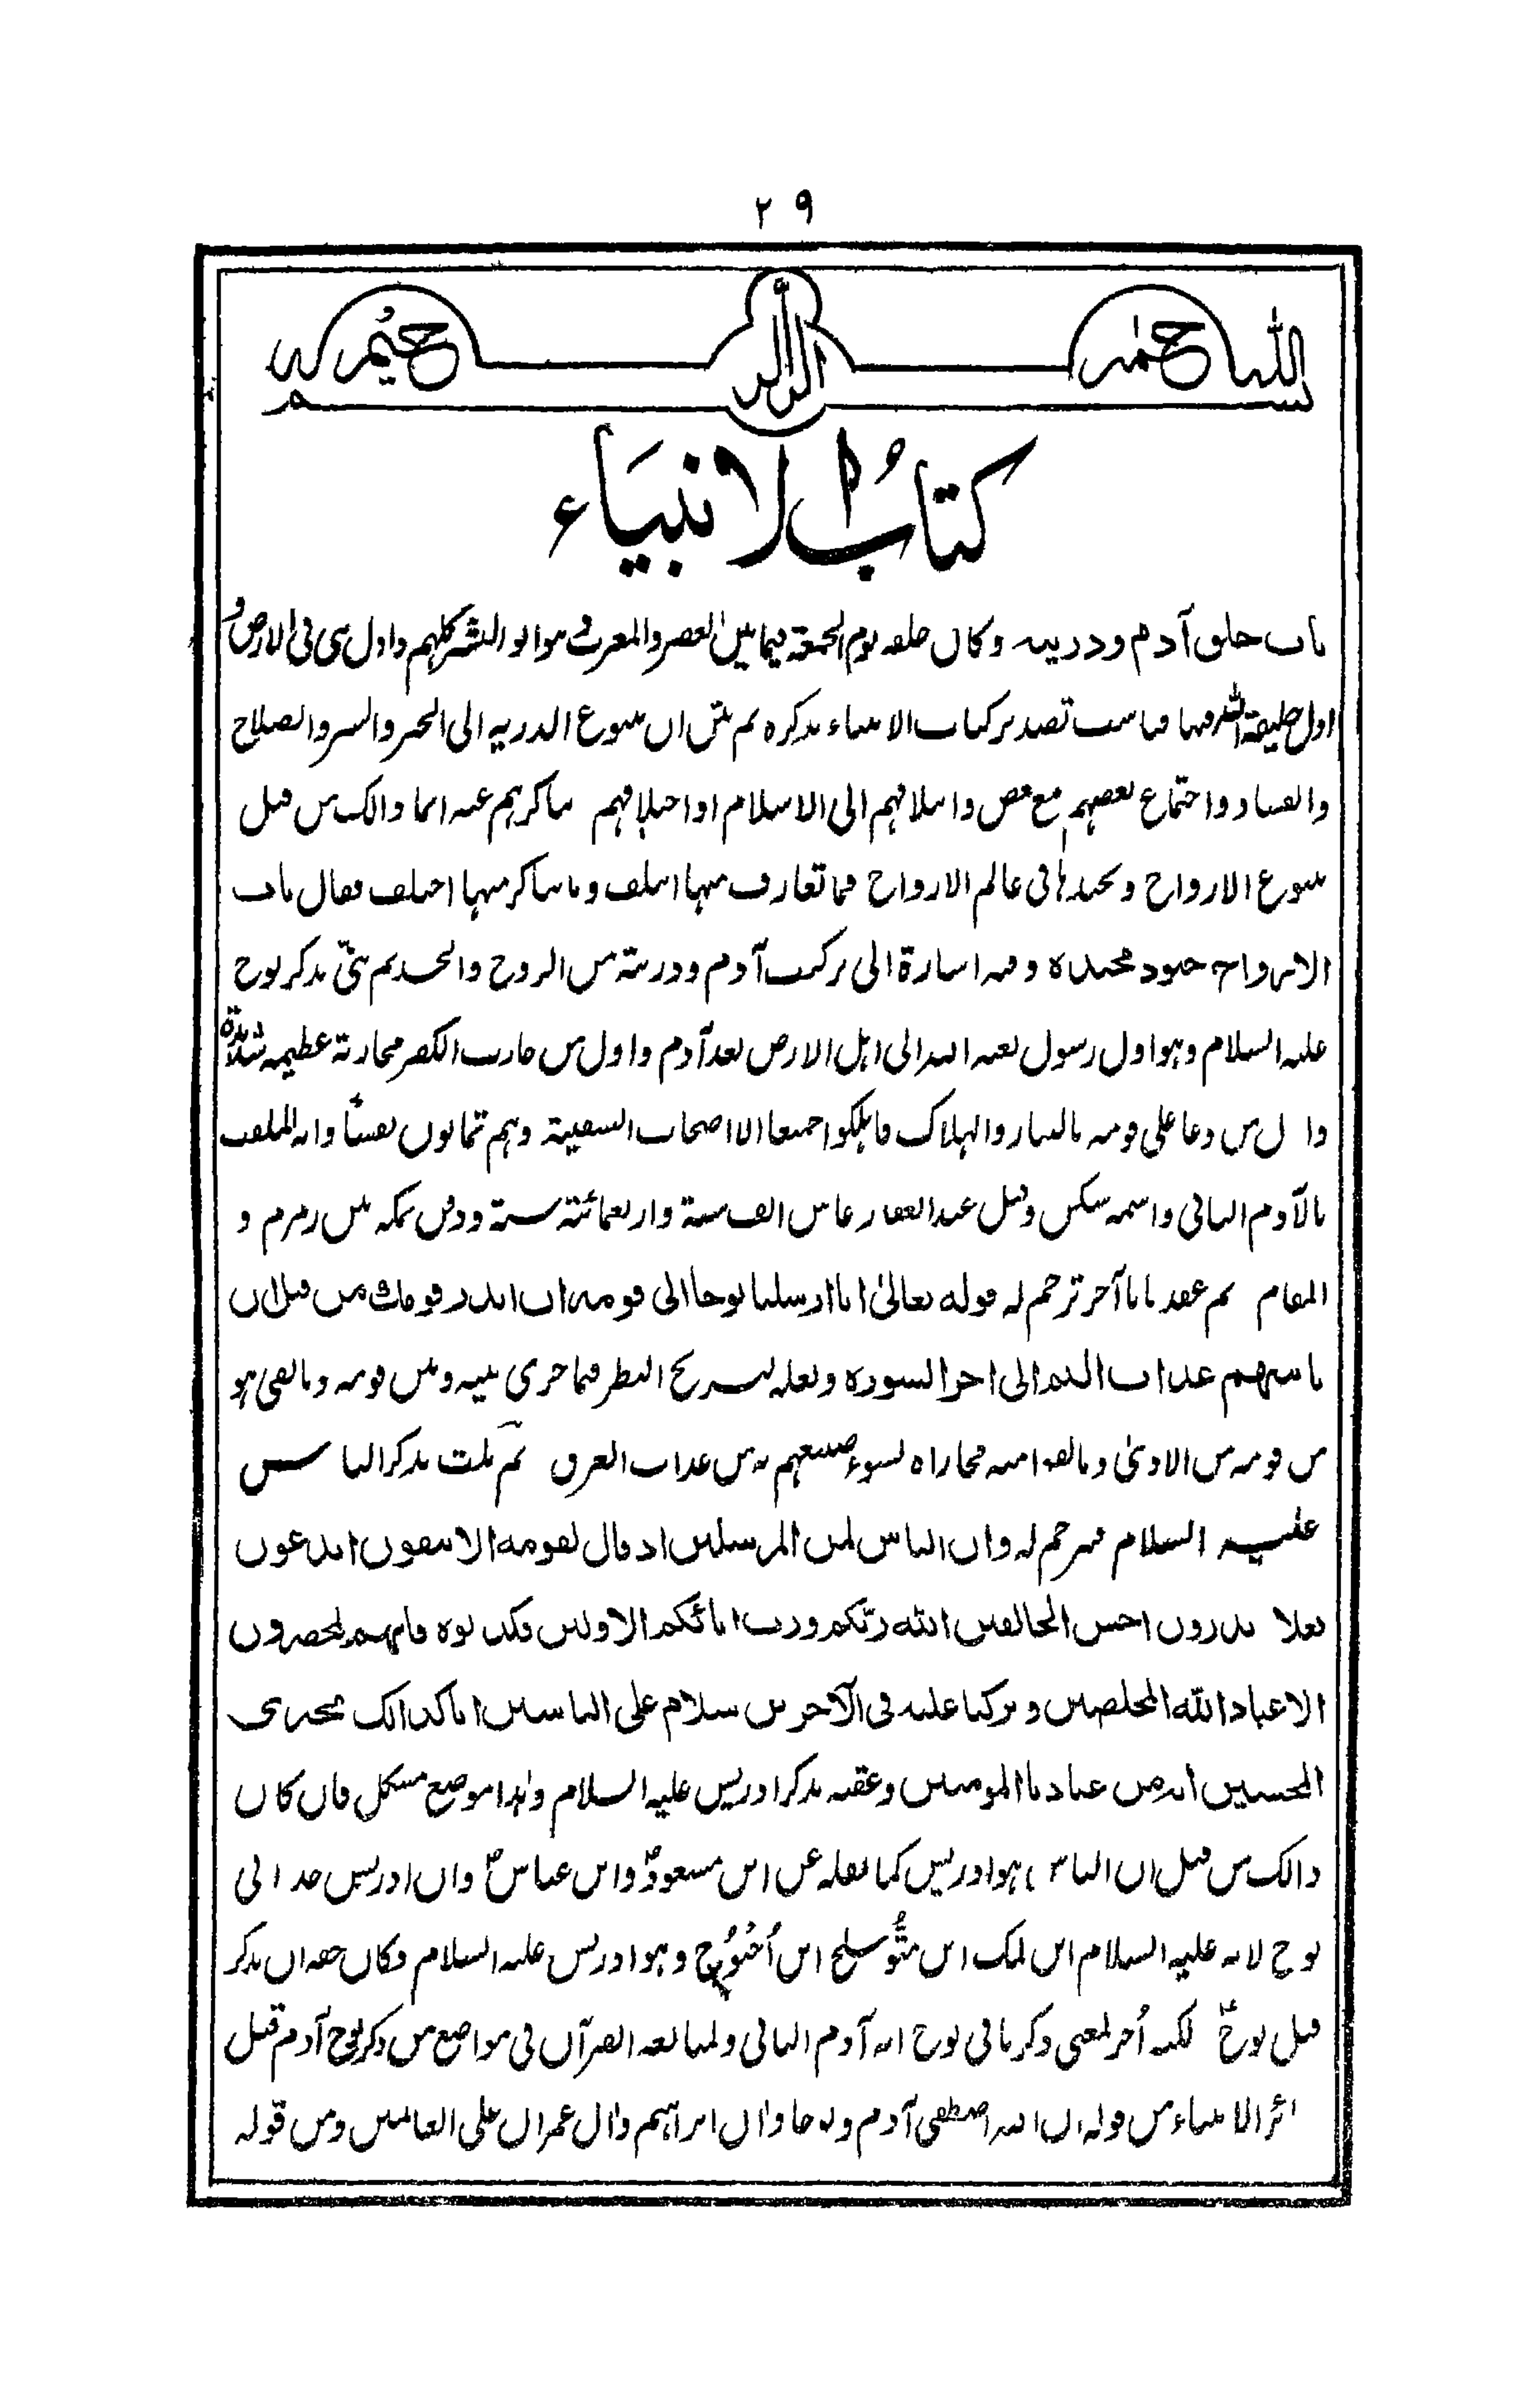 ٢٩
بسم الله الرحمن الرحيم
كتاب الانبياء
باب خلق آدم وذريته وكان خلقه يوم الجمعة فيما بين العصر والمغرب هو ابو البشر كلهم واول نبي في الارض و
اول خليفة الله فيها فناسب تصدير كتاب الانبياء بذكره ثم بين ان تنوع الذرية الى الخير والشر والصلاح
والفساد واجتماع بعضهم مع بعض وايتلافهم الى الاسلام او اختلافهم تناكرهم عنه انما ذالك من قبل
تنوع الارواح وتجندها في عالم الارواح فما تعارف منها ائتلف وما تناكر منها اختلف فقال باب
الارواح جنود مجندة وفيه اشارة الى تركيب آدم وذريته من الروح والجسد ثم ثنى بذكر نوح
عليه السلام وهو اول رسول بعثه الله الى اهل الارض بعد آدم واول من حارب الكفر محاربة عظيمة شديدة
واول من دعا على قومه بالتبار والهلاك فاهلكوا جميعا الا اصحاب السفينة وهم ثمانون نفسا وانه الملقب
بالآدم الثاني واسمه سكن وقيل عبد الغفار عاش الف سنة واربعمائة سنة ودفن بمكة بين زمزم و
المقام ثم عقد بابا آخر ترجم له قوله تعالىٰ انا ارسلنا نوحا الى قومه ان انذر قومك من قبل ان
ياتيهم عذاب اليم الى اخر السورة ولعله لتسريح النظر فيما جرى بينه وبين قومه وما لقي هو
من قومه من الاذىٰ وما لقوا منه مجازاة لسوء صنيعهم به من عذاب الغرق ثم ثلث بذكر الياس
عليه السلام فترجم له وان الياس لمن المرسلين اذ قال لقومه الا تتقون اتدعون
بعلا وتذرون احسن الخالقين الله ربكم ورب ابائكم الاولين فكذبوه فانهم لمحضرون
الا عباد الله المخلصين وتركنا عليه في الآخرين سلام على الياسين انا كذالك نجزي
المحسنين انه من عبادنا المومنين وعقبه بذكر ادريس عليه السلام وهذا موضع مشكل فان كان
ذالك من قبل ان الياس هو ادريس كما نقله عن ابن مسعودؓ وابن عباسؓ وان ادريس جد ابي
نوح لانه عليه السلام ابن لمك ابن متُّوشلخ ابن اُخنوخ وهو ادريس عليه السلام فكان حقه ان يذكر
قبل نوحؑ لكنه اُخر لمعنى ذكرنا في نوح انه آدم الثاني ولمتابعة القرآن في مواضع من ذكر نوح آدم قبل
سائر الانبياء من قوله ان الله اصطفى آدم ونوحا وال ابراهيم وال عمران على العالمين ومن قوله